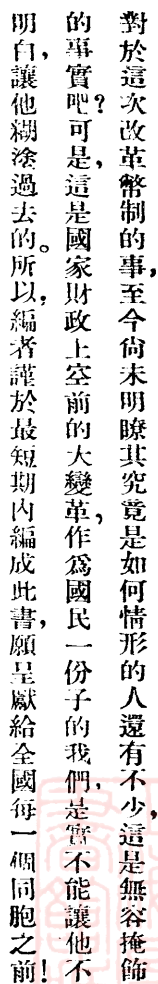 對於這次改革幣制的事，至今尙未明瞭其究竟是如何情形的人還有不少，這是無容掩飾
的事實吧？可是，這是國家財政上空前的大變革，作爲國民一份子的我們，是實不能讓他不
明白，讓他糊塗過去的。所以，編者謹於最短期內編成此書，願呈獻給全國每一個同胞之前！